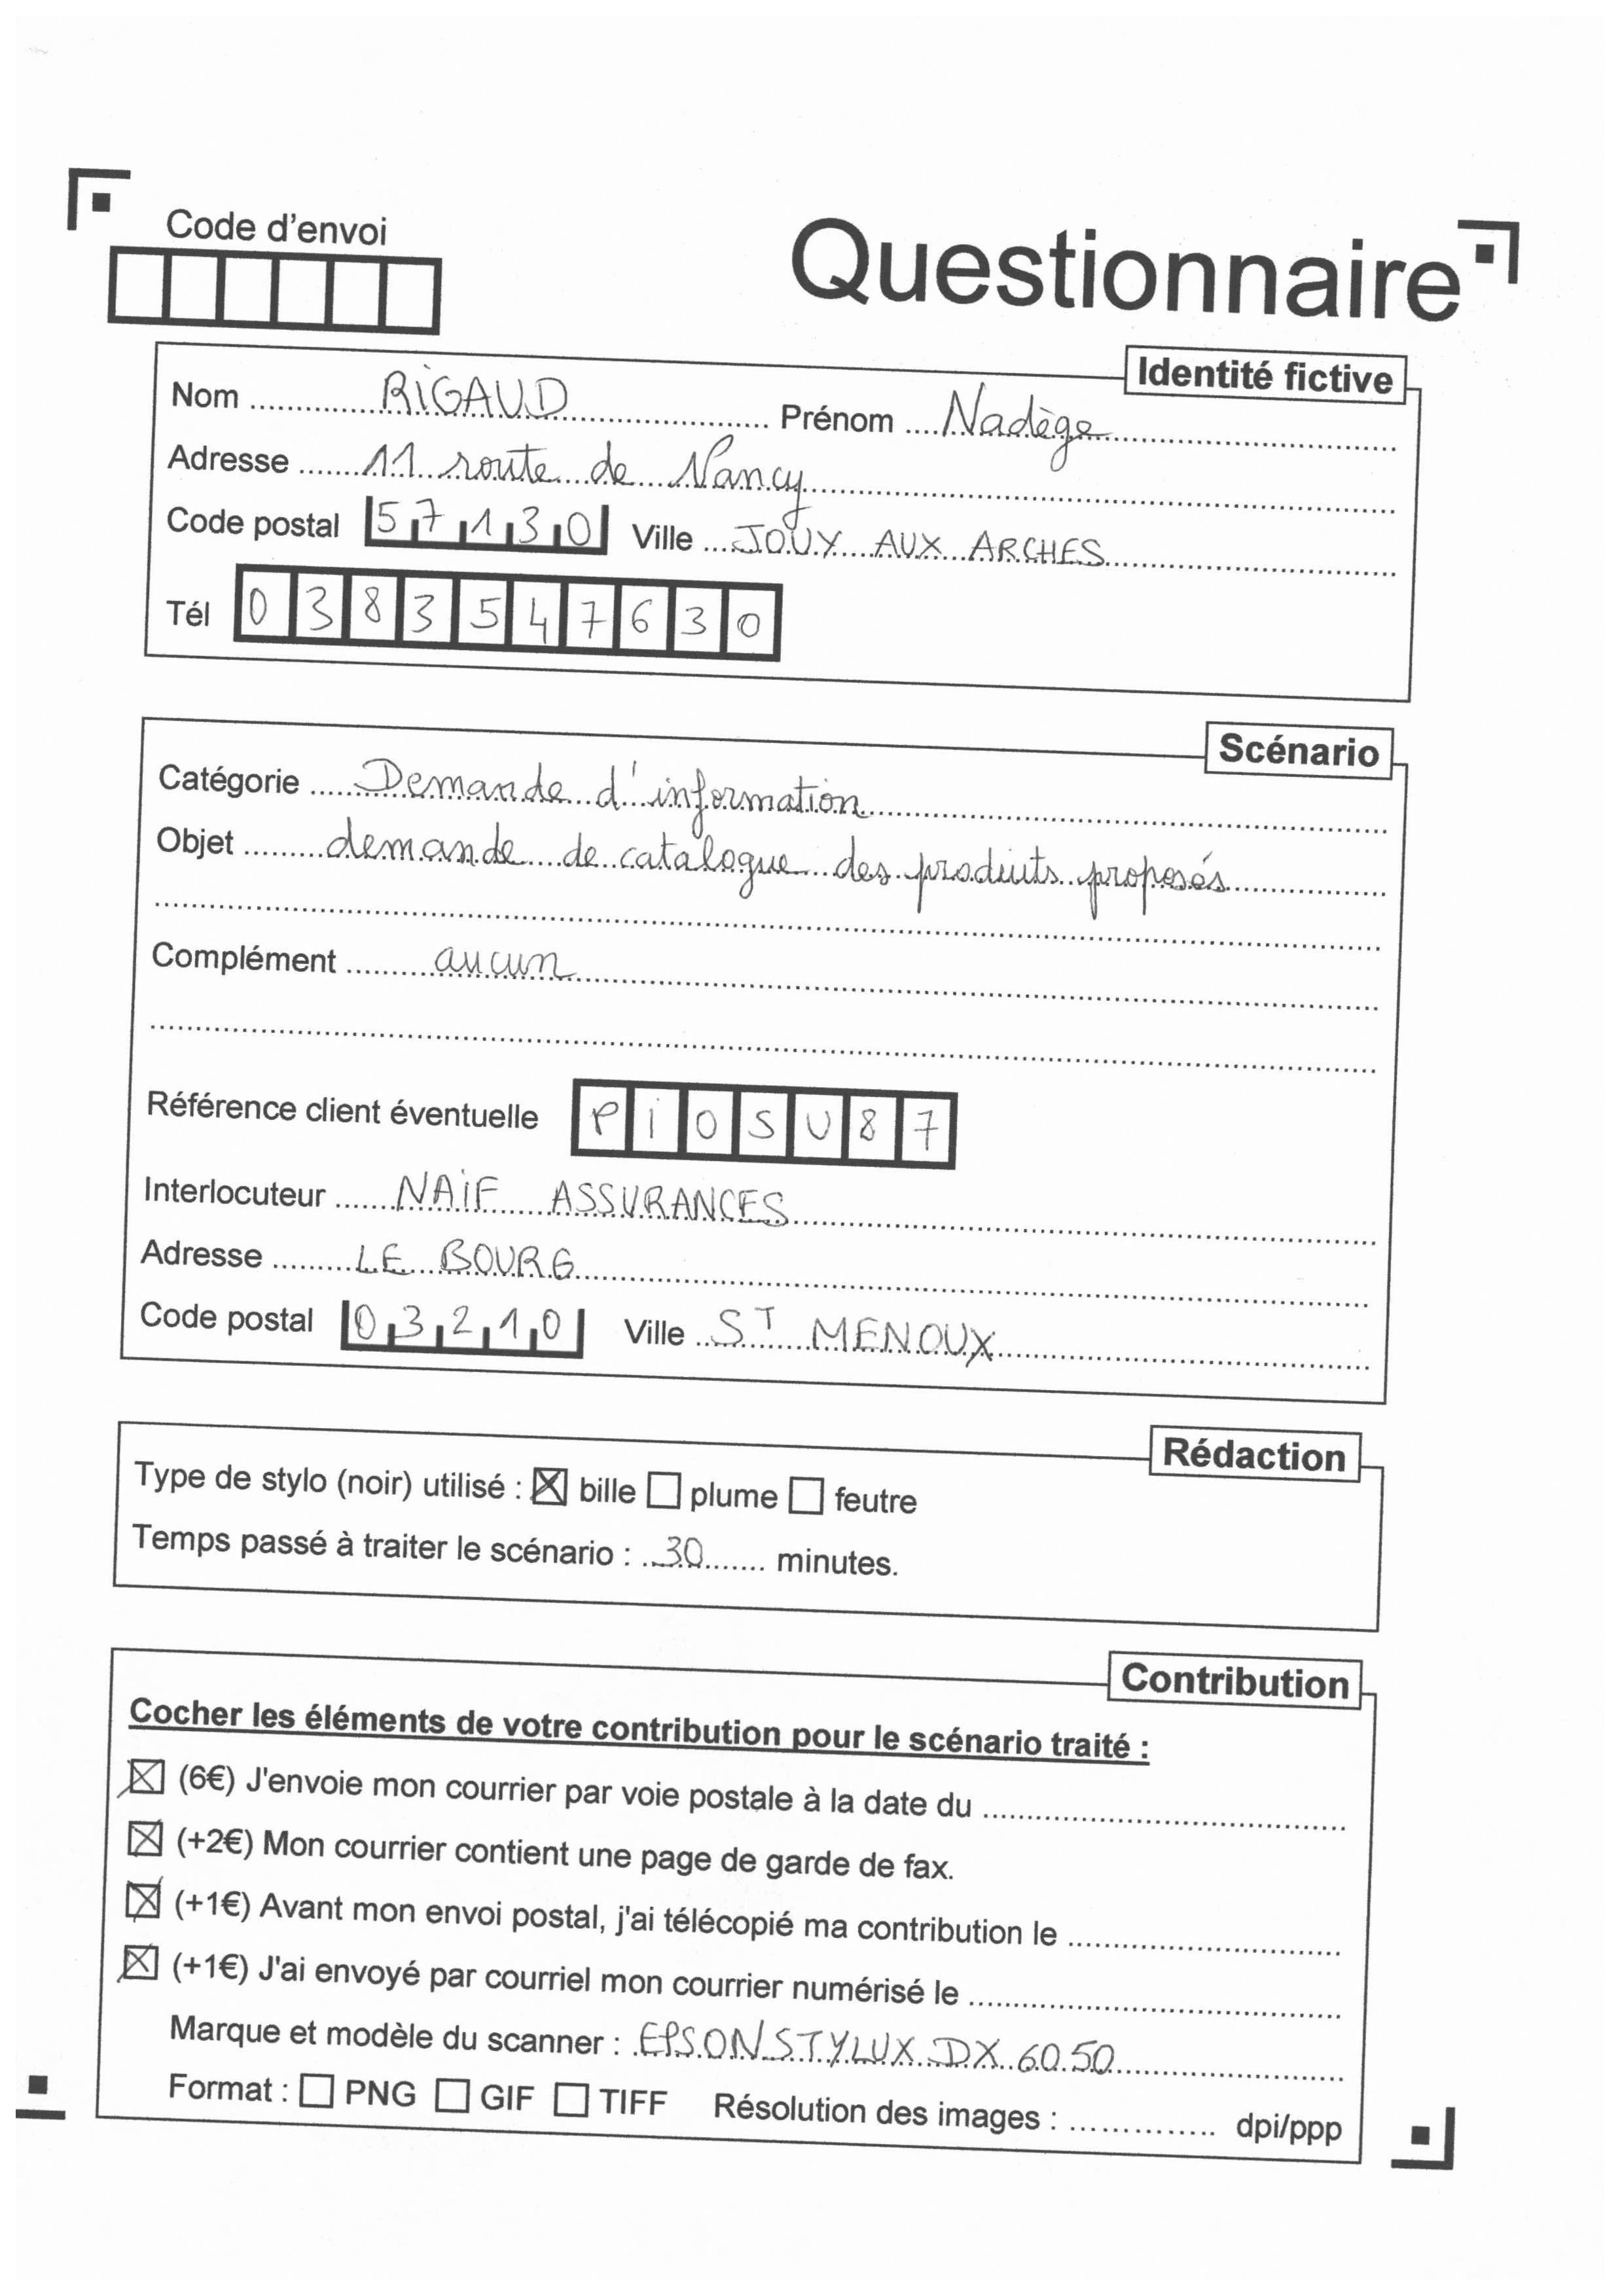 Code d'envoi
Questionnaire
Identité fictive
Nom RiGAUD Prénom Nadège
Adresse 11 route de Nancy
Code postal 57130 Ville JOUY AUX ARCHES
Tél 0383547630
Scénario
Catégorie Demande d'information
Objet demande de catalogue des produits proposés
Complément aucun
Référence client éventuelle PiOSU87
Interlocuteur NAiF ASSURANCES
Adresse LE BOURG
Code postal 03210 Ville ST MENOUX
Rédaction
Type de stylo (noir) utilisé : ☒ bille ☐ plume ☐ feutre
Temps passé à traiter le scénario : 30 minutes.
Contribution
Cocher les éléments de votre contribution pour le scénario traité :
☒ (6€) J'envoie mon courrier par voie postale à la date du
☒ (+2€) Mon courrier contient une page de garde de fax.
☒ (+1€) Avant mon envoi postal, j'ai télécopié ma contribution le
☒ (+1€) J'ai envoyé par courriel mon courrier numérisé le
Marque et modèle du scanner : EPSON STYLUX DX 6050
Format : ☐ PNG ☐ GIF ☐ TIFF Résolution des images : dpi/ppp